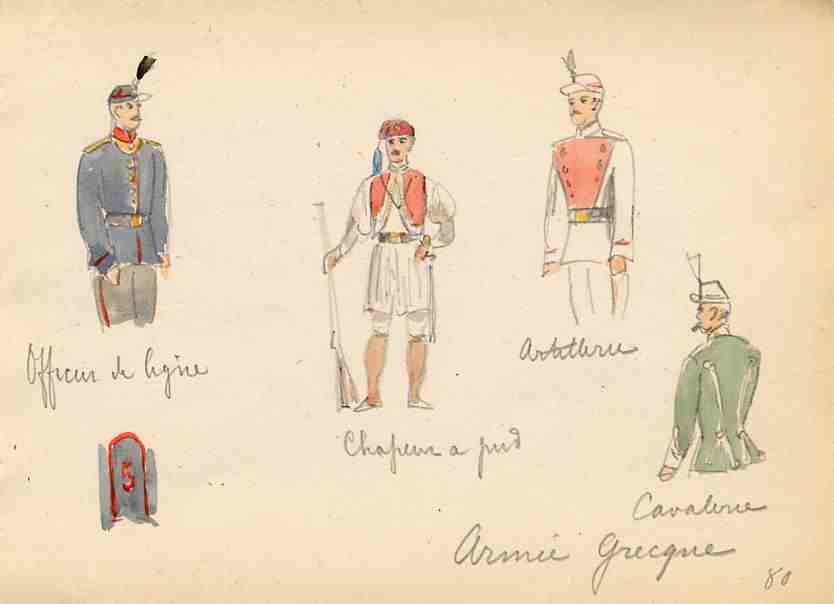 Officier de ligne
5
Chasseur a pied
Artillerie
Cavalerie
Armée Grecque
80